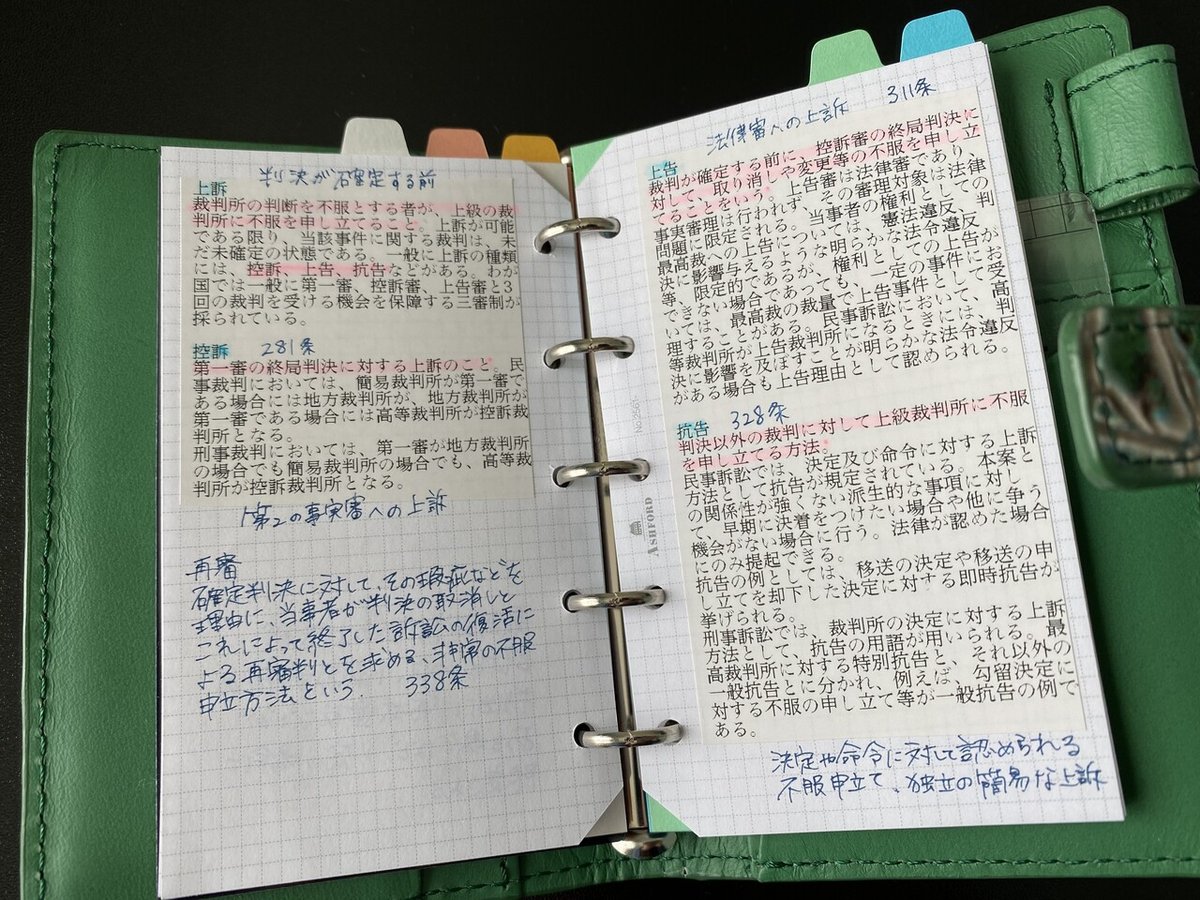 判決が確定する前
上訴
裁判所の判断を不服とする者が、上級の裁
判所に不服を申し立てること。上訴が可能
である限り、当該事件に関する裁判は、未
だ未確定の状態である。一般に上訴の種類
には、控訴、上告、抗告などがある。わが
国では一般に第一審、控訴審、上告審と3
回の裁判を受ける機会を保障する三審制が
採られている。
控訴 281条
第一審の終局判決に対する上訴のこと。民
事裁判においては、簡易裁判所が第一審で
ある場合には地方裁判所が、地方裁判所が
第一審である場合には高等裁判所が控訴裁
判所となる。
刑事裁判においては、第一審が地方裁判所
の場合でも簡易裁判所の場合でも、高等裁
判所が控訴裁判所となる。
第2の事実審への上訴
再審
確定判決に対して、その瑕疵などを
理由に、当事者が判決の取消しと
これによって終了した訴訟の復活に
よる再審判とを求める、非常の不服
申立方法という. 338条
法律審への上訴 311条
上告
裁判が確定する前に、控訴審の終局判決に
対して、取り消しや変更等の不服を申し立
てることをいう。上告審は法律審であり、
事実審理は行われず、その審理対象は法律
問題に限定される。当事者の権利としての
最高裁への上告については、憲法違反、判
決に影響を与えるような明らかな法令違反
等、限定的であるが、権利としての上告が
できない場合であっても、一定の事件にお
いては、最高裁の裁量で上告事件として受
理することがある。民事訴訟において、高
等裁判所が上告裁判所になるときには、判
決に影響を及ぼすことが明らかな法令違反
がある場合も上告理由として認められる。
抗告 328条
判決以外の裁判に対して上級裁判所に不服
を申し立てる方法。
民事訴訟では、決定及び命令に対する上訴
方法として抗告が規定されている。本案と
の関係性が強くない派生的な事項に対し
て、早期に決着をつけたい場合や他に争う
機会がない場合に行う。法律が認めた場合
にのみ提起できる。
抗告の例としては、移送の決定や移送の申
し立てを却下した決定に対する即時抗告が
挙げられる。
刑事訴訟では、裁判所の決定に対する上訴
方法として、抗告の用語が用いられる。最
高裁判所に対する特別抗告と、それ以外の
一般抗告とに分かれ、例えば、勾留決定に
対する不服の申し立て等が一般抗告の例で
ある。
決定や命令に対して認められる
不服申立て、独立の簡易な上訴
ASHFORD